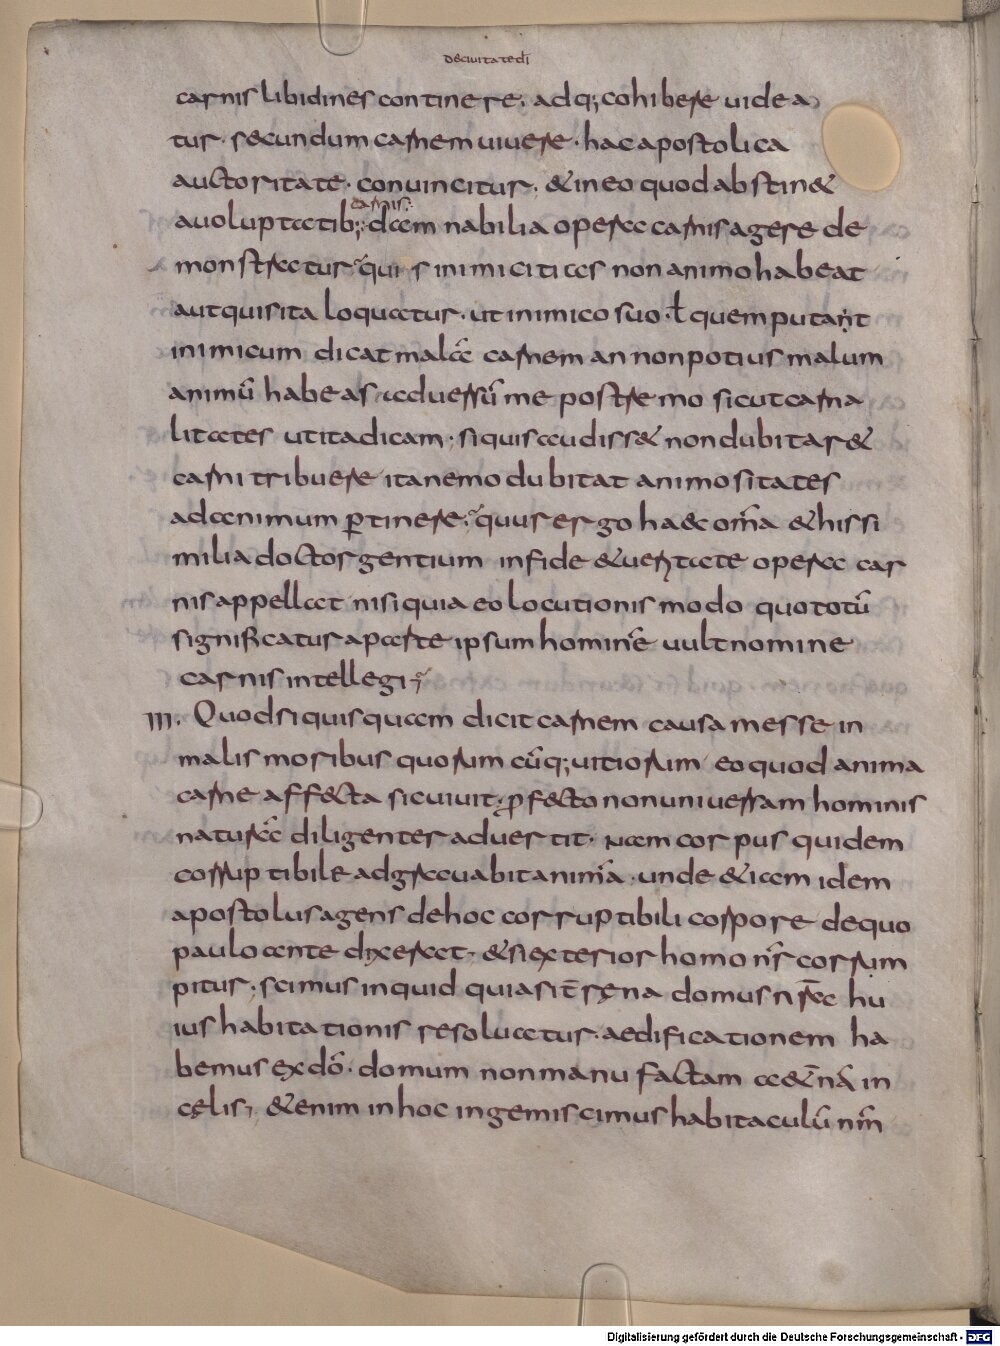 De ciuitate dī
carnis libidines continere. adq; cohibere uidea
tur. secundum carnem uiuere. hac apostolica
auctoritate. conuincitur. & in eo quod abstin&
carnis.
a uoluptatib; dam nabilia opera carnis agere de
monstratur qui s inimicitias non animo habeat
aut quis ita loquatur. ut inimico suo. ł quem putant
inimicum dicat malā carnem an non potius malum
animū habeas aduersū me postremo sicut carna
litates ut ita dicam. si quis audiss& non dubitar&
carni tribuere ita nemo dubitat animositates
ad animum ꝑtinere. quur ergo haec om̄a & his si
milia doctor gentium in fide & ueritate opera car
nis appellat nisi quia eo locutionis modo quo totū
significatur a parte ipsum hominē uult nomine
carnis intellegi
III. Quod si quisquam dicit carnem causam esse in
malis moribus quorum cūq; uitiorum eo quod anima
carne affecta sic uiuit. ꝓfecto non uniuersam hominis
naturā diligenter aduertit. Nam corpus quidem
corruptibile adgrauabit animā. unde & iam idem
apostolus agens de hoc corruptibili corpore de quo
paulo ante dixerat. & si exterior homo nr̄ corrum
pitur. scimus inquid quia si t̄rena domus nr̄a hu
ius habitationis resoluatur. aedificationem ha
bemus ex dō. domum non manu factam aet̄nā in
cęlis, & enim in hoc ingemiscimus habitaculū nr̄m
Digitalisierung gefördert durch die Deutsche Forschungsgemeinschaft - DFG